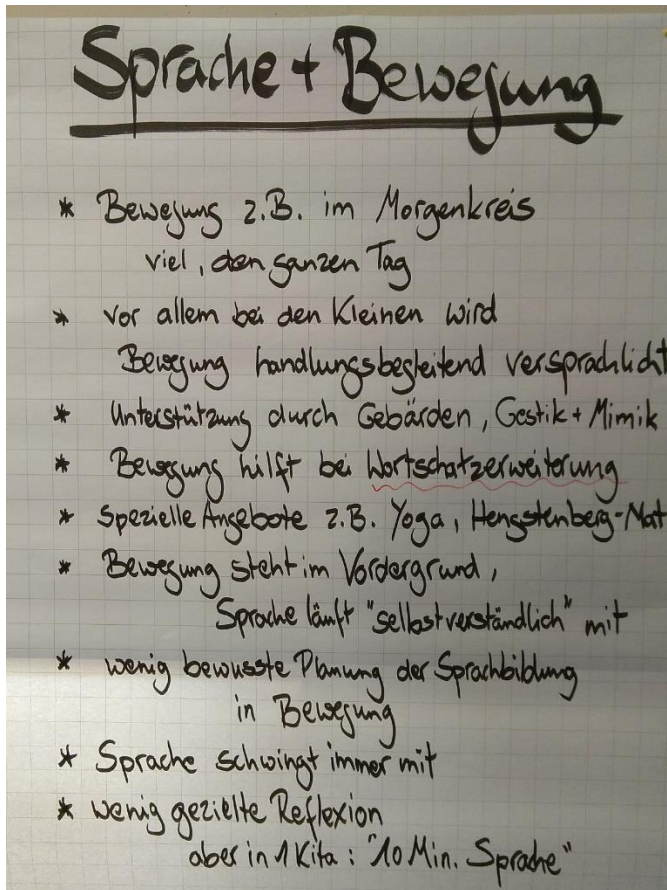 Sprache + Bewegung
* Bewegung z.B. im Morgenkreis
viel, den ganzen Tag
* vor allem bei den Kleinen wird
Bewegung handlungsbegleitend versprachlicht
* Unterstützung durch Gebärden, Gestik + Mimik
* Bewegung hilft bei Wortschatzerweiterung
* Spezielle Angebote z.B. Yoga, Hengstenberg-Mat
* Bewegung steht im Vordergrund,
Sprache läuft "selbstverständlich" mit
* wenig bewusste Planung der Sprachbildung
in Bewegung
* Sprache schwingt immer mit
* wenig gezielte Reflexion
aber in 1 Kita: "10 Min. Sprache"